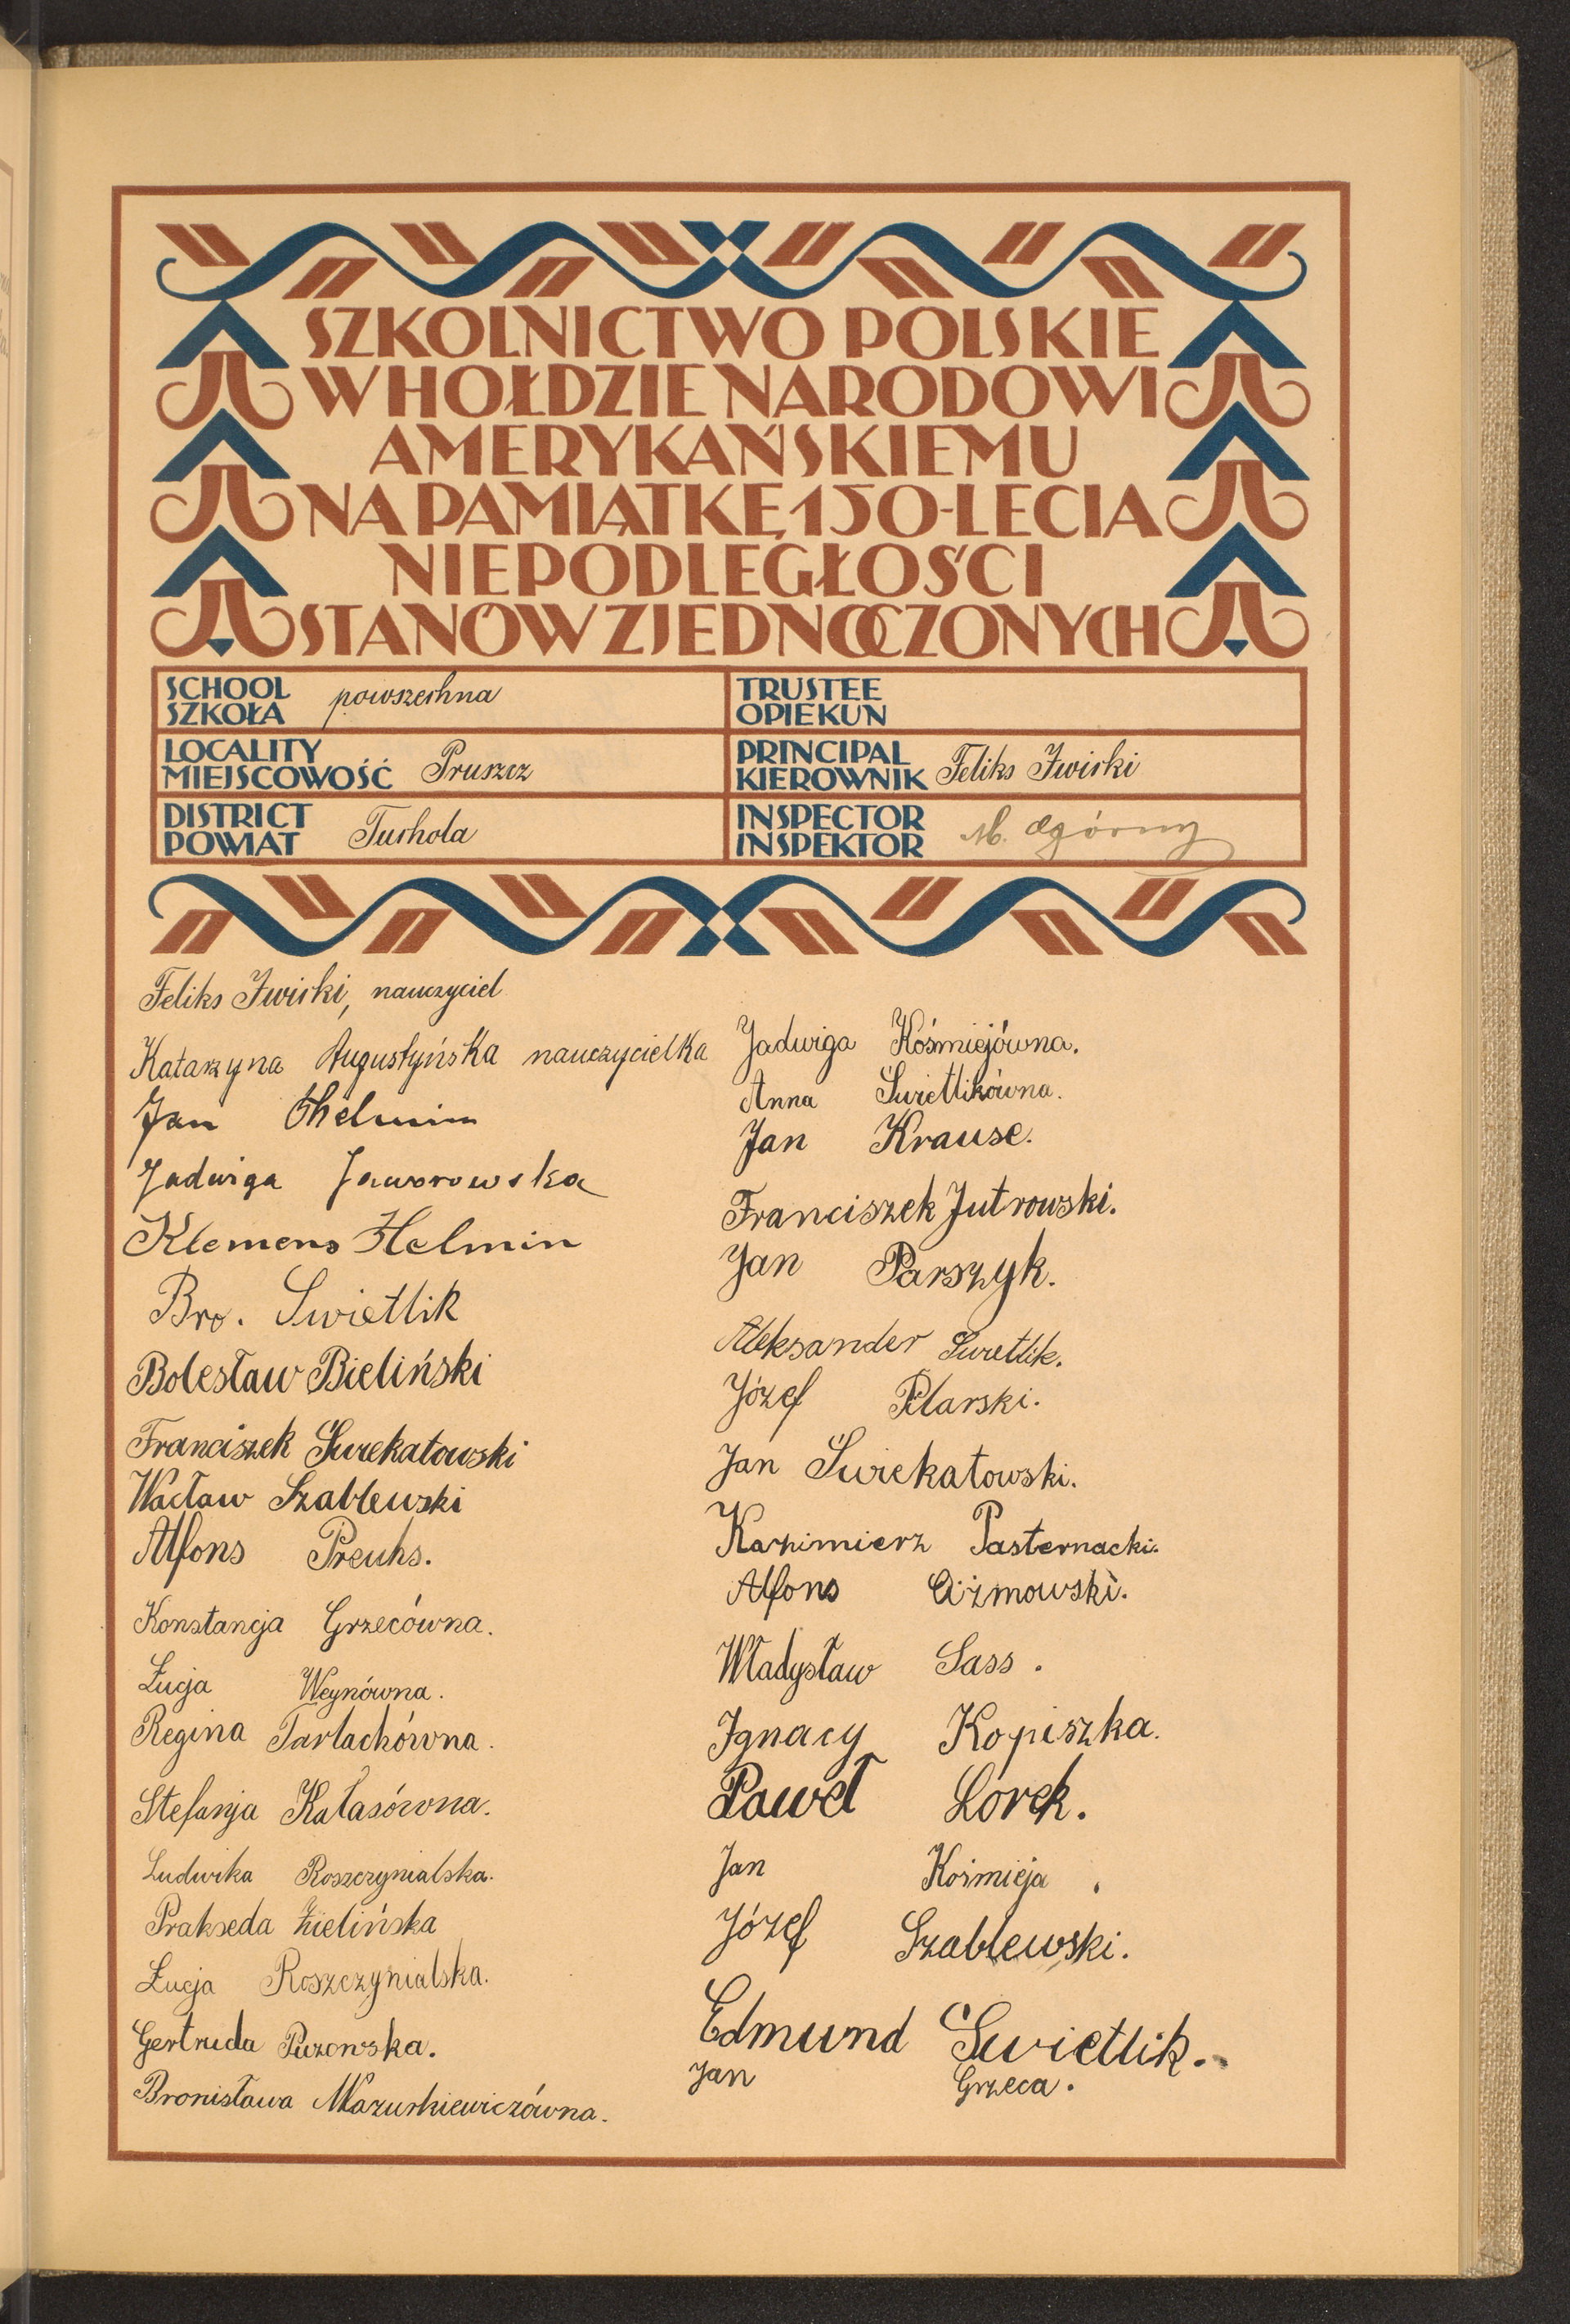 SZKOLNICTWO POLSKIE
W HOŁDZIE NARODOWI
AMERYKAŃSKIEMU
NA PAMIĄTKĘ 150-LECIA
NIEPODLEGŁOŚCI
STANÓW ZJEDNOCZONYCH
SCHOOL
SZKOŁA powszechna
TRUSTEE
OPIEKUN
LOCALITY
MIEJSCOWOŚĆ Pruszcz
PRINCIPAL
KIEROWNIK Feliks Żwirki
DISTRICT
POWIAT Tuchola
INSPECTOR
INSPEKTOR M. Ogórny
Feliks Żwirki, nauczyciel
Katarzyna Augustyńska nauczycielka
Jan Chelmin
Jadwiga Jaworowska
Klemens Helmin
Bro. Swietlik
Bolesław Bieliński
Franciszek Świekatowski
Wacław Szablewski
Alfons Preuhs.
Konstancja Grzecówna.
Łucja Weynówna.
Regina Tarlachówna.
Stefanja Kałasówna.
Ludwika Roszczynialska.
Prakseda Zielińska
Łucja Roszczynialska.
Gertruda Puzowska.
Bronisława Mazurkiewiczówna.
Jadwiga Kośmiejówna.
Anna Świetlikówna.
Jan Krause.
Franciszek Jutrowski.
Jan Parszyk.
Aleksander Świetlik.
Józef Pilarski.
Jan Świekatowski.
Kazimierz Pasternacki.
Alfons Ciżmowski.
Władysław Sass.
Ignacy Kopiszka.
Paweł Lorek.
Jan Kośmieja.
Józef Szablewski.
Edmund Świetlik.
Jan Grzeca.